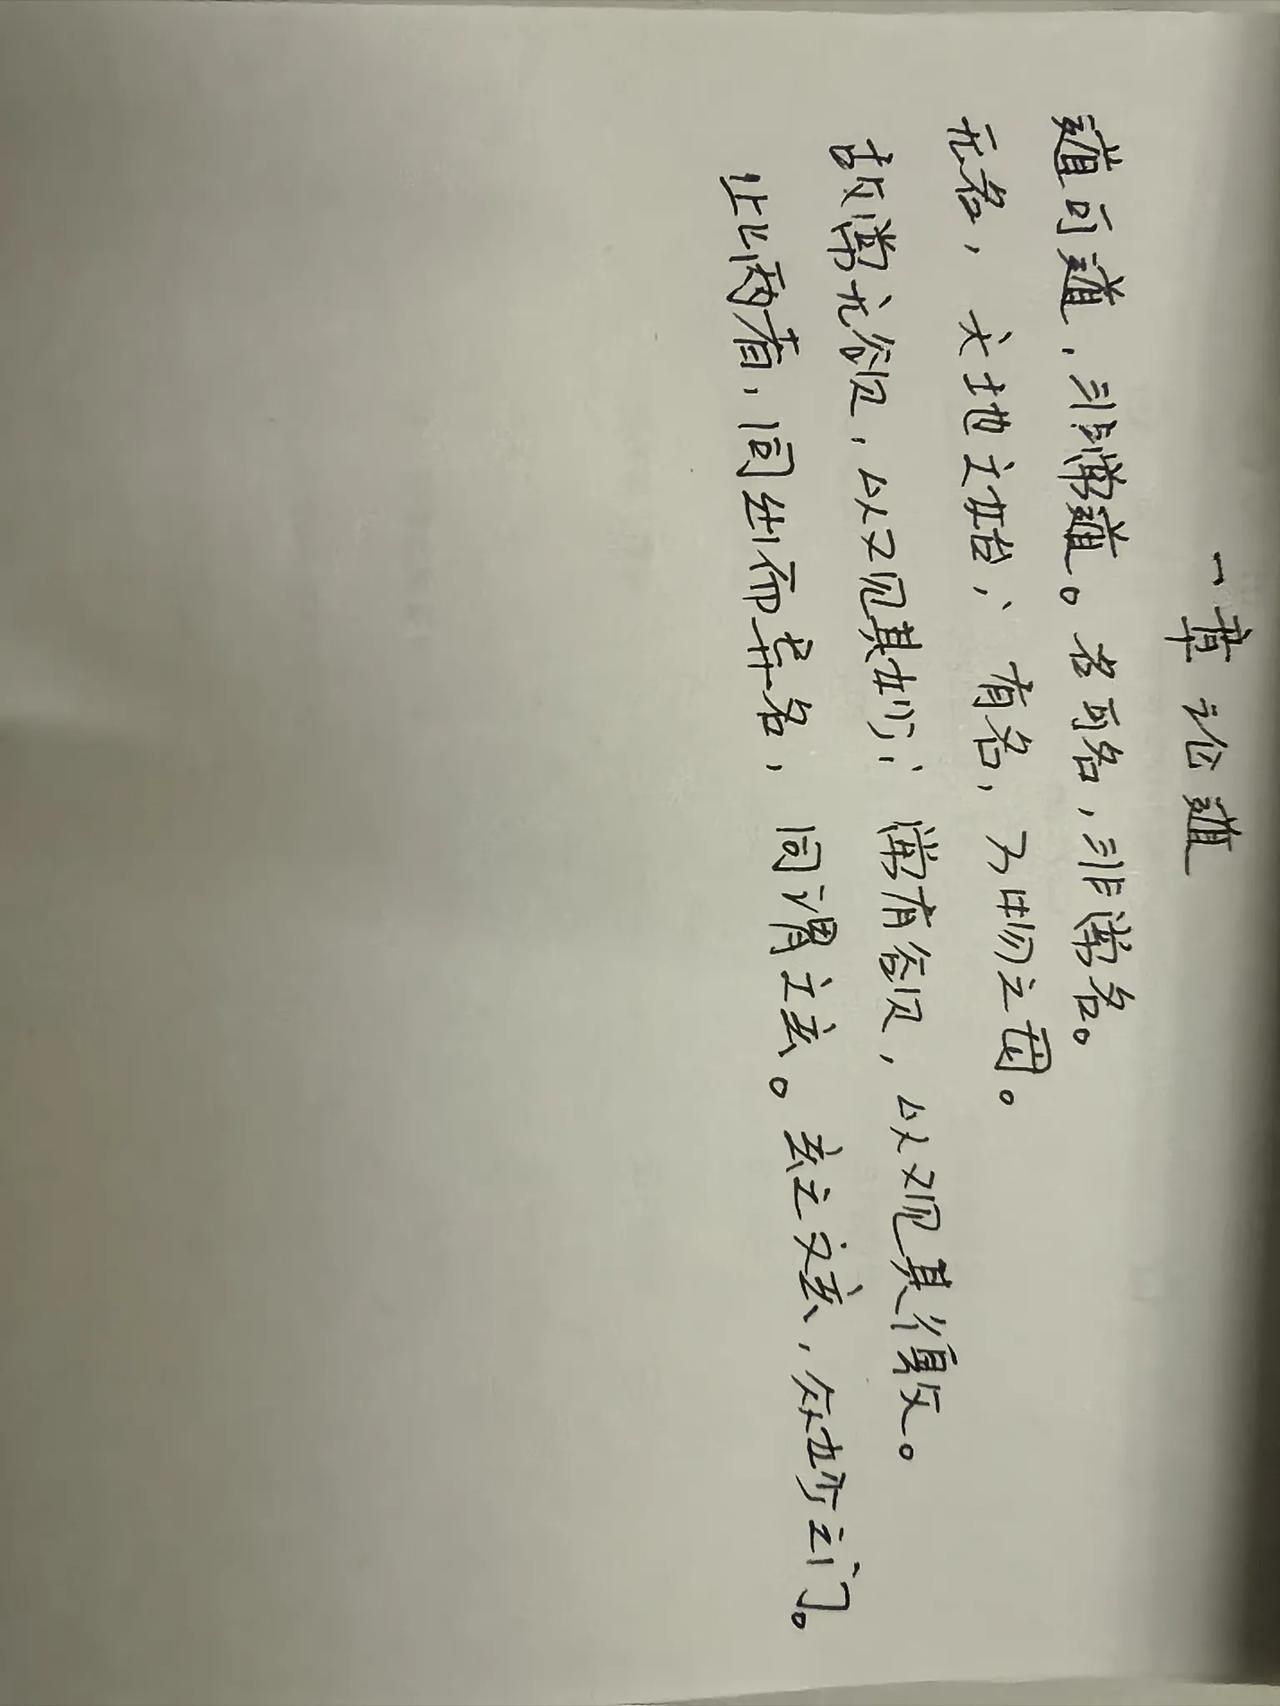 一章 论道
道可道，非常道。名可名，非常名。
无名，天地之始；有名，万物之母。
故常无欲，以观其妙；常有欲，以观其徼。
此两者，同出而异名，同谓之玄。玄之又玄，众妙之门。